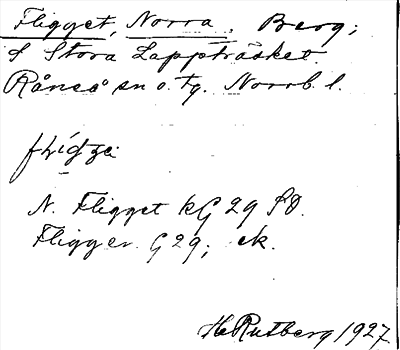 Fligget, Norra, Berg;
S Stora Lappträsket.
Råneå sn o. tg. Norrb. l.
N. Fligget KG 29 SO.
Fligger G 29; ek.
H. Rutberg 1927